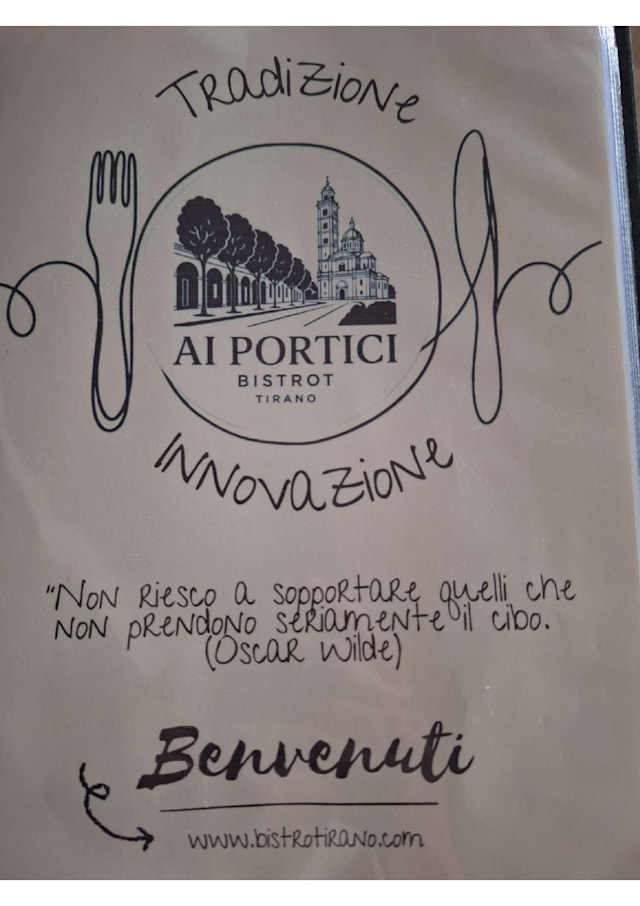 Tradizione
AI PORTICI
BISTROT
TIRANO
INNOVAZIONE
"Non riesco a sopportare quelli che
non prendono seriamente il cibo.
(Oscar Wilde)
Benvenuti
www.bistrotirano.com